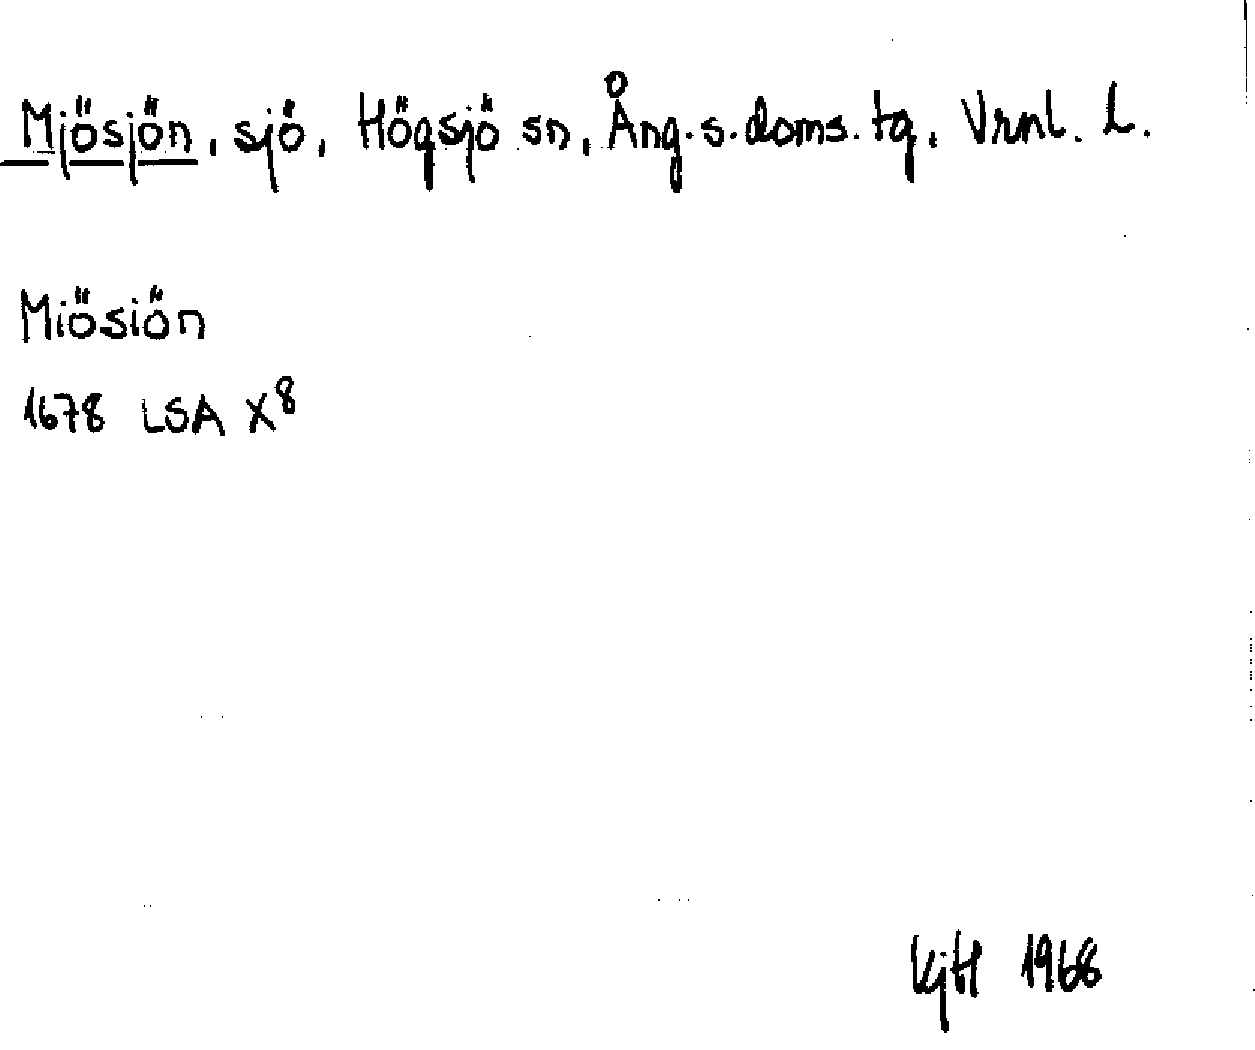 Mjösjön, sjö, Högsjö sn, Ång.s.doms.tg. Vrnl. L.
Miösiön
1678 LSA X8
KjH 1968